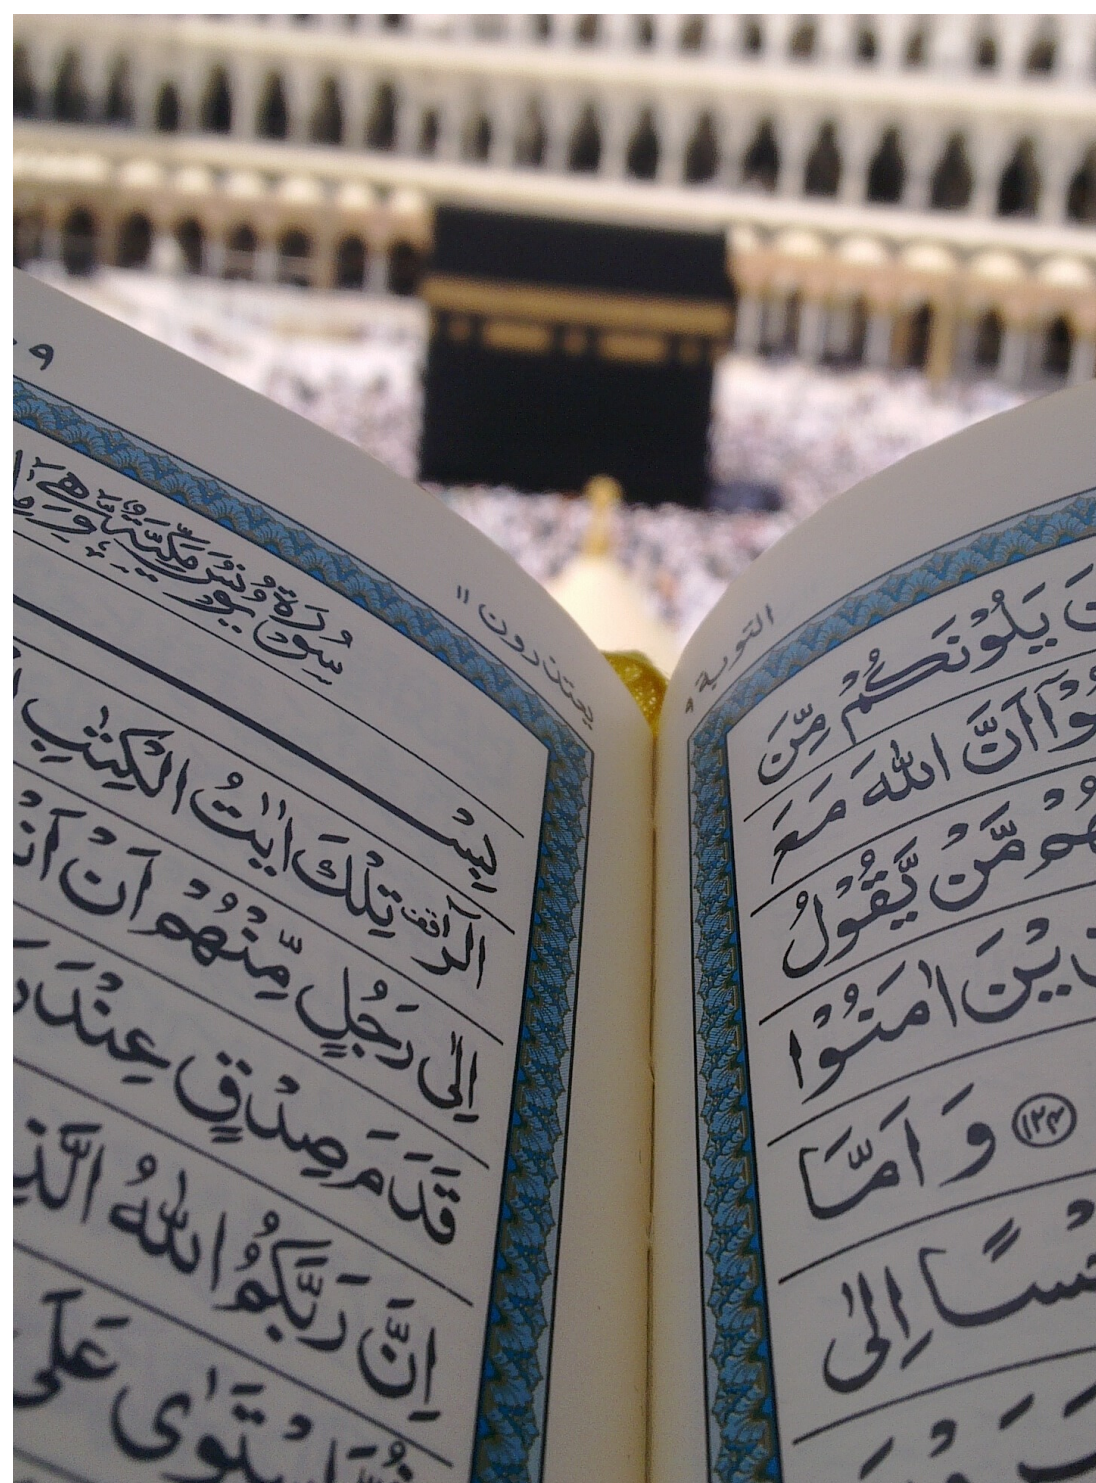 التوبة ٩
يَلُوْنَكُمْ مِّنَ
اَنَّ اللّٰهَ مَعَ
مَّنْ يَّقُوْلُ
اٰمَنُوْا
﴿۱۲۴﴾ وَ اَمَّا
اِلٰى
يعتذرون ١١
سُوْرَةُ يُوْنُسَ مَكِّيَّةٌ
بِسْ
الٓرٰ تِلْكَ اٰيٰتُ الْكِتٰبِ
اِلٰى رَجُلٍ مِّنْهُمْ اَنْ
قَدَمَ صِدْقٍ عِنْدَ
اِنَّ رَبَّكُمُ اللّٰهُ
ثُمَّ اسْتَوٰى عَلَى